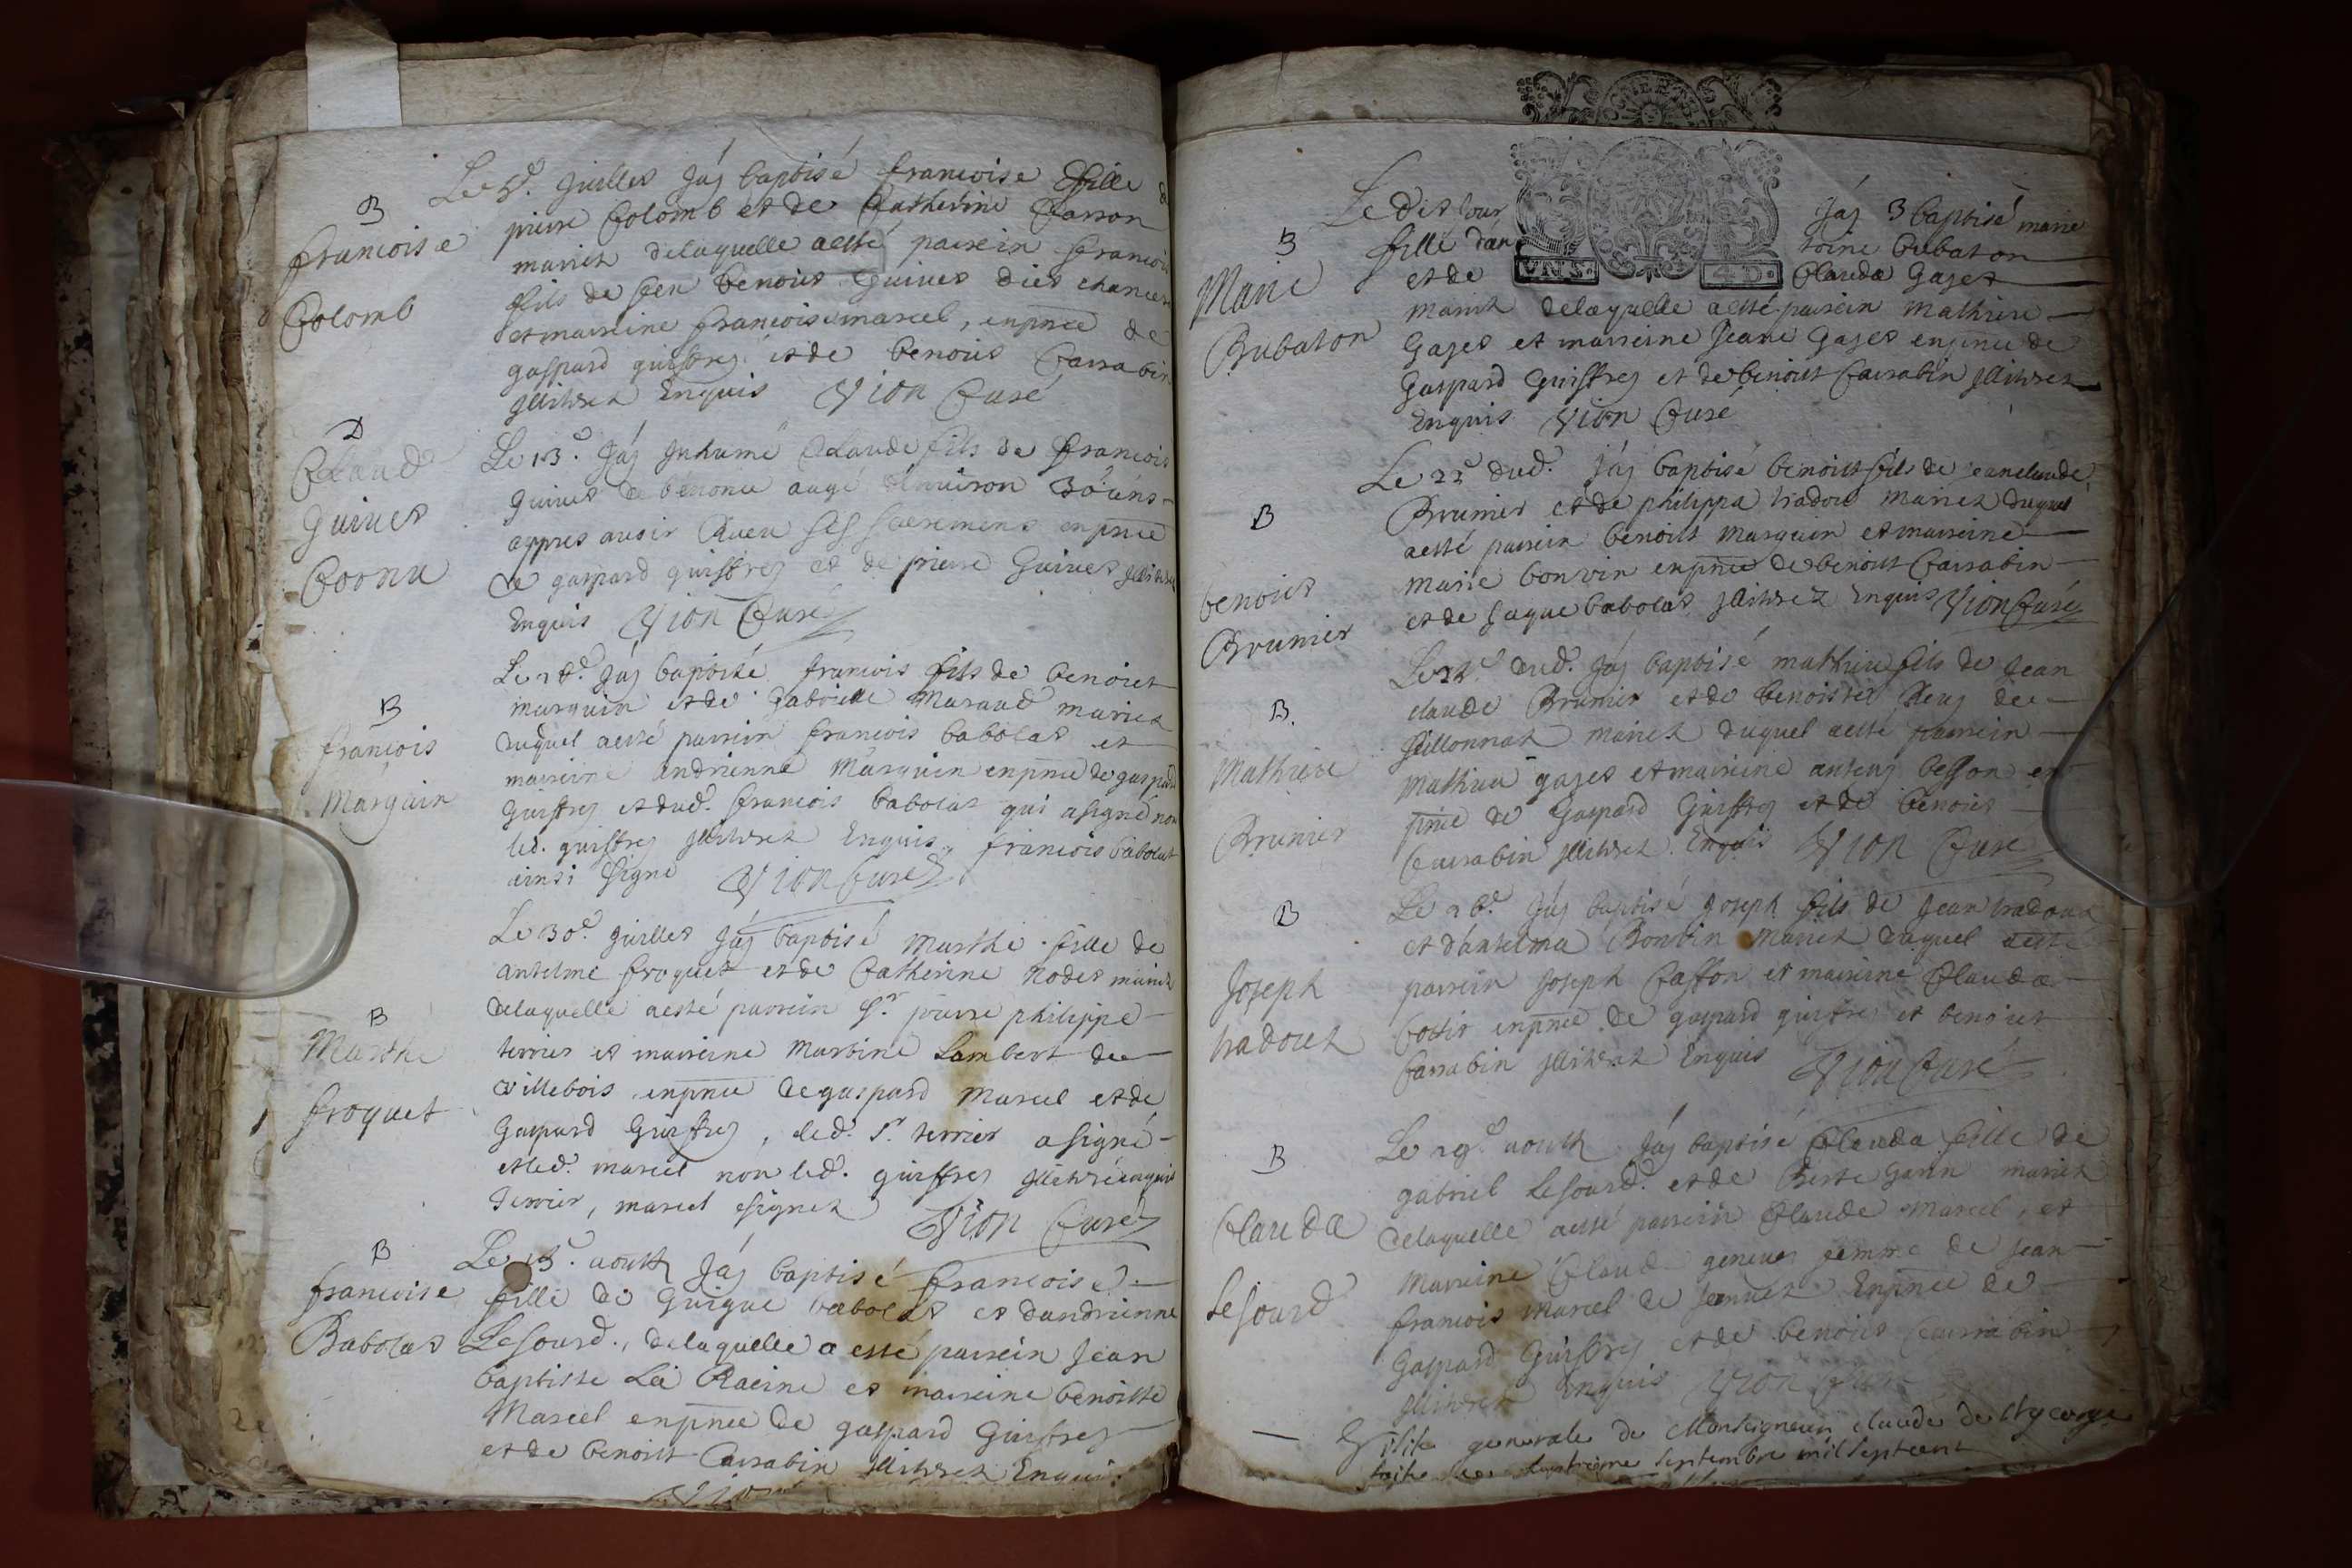 B
francoise
Colomb
Le 5e. Juillet Jáy baptisé francoise fille de
pierre Colomb et de Catherine Carron
mariez delaquelle aesté parrein francois
fils de feu benoit Guinet dict
et marreine francoise marcel, enpnce de
gaspard guiffrey et de benoit Carrabin
Jllitérez Enquis Vion Curé
D
Claude
Guinet
Le 13e. Jáy Inhumé Claude fils de francois
Guinet de benonce augé denviron 30 ans
appres avoir Receu ses sacremens enpnce
de gaspard guiffrey et de pierre Guinet Jllitérez
Enquis Vion Curé
B
francois
Marquin
Jáy baptisé francois fils de benoict
marquin et de Gabrielle Maraud mariez
duquel aesté parrein francois babolat et
marreine andrienne Marquin enpnce de gaspard
Guiffrey et dud. francois babolat qui asigné non
led. guiffrey Jllitérez Enquis, francois babolat
ainsi signé Vion Curé
B
Marthe
froquet
Le 30e. Juillet Jáy baptisé Marthe fille de
antelme froquet et de Catherine Nodet mariez
delaquelle aesté parrein Sr. pierre philippe
terrier et marreine Martine Lambert de
villebois enpnce de gaspard Marcel et de
Gaspard Guiffrey, led. Sr. terrier asigné
et led. marcel non led. guiffrey Jllitéré enquis
Terrier, marcel signez Vion Curé
B
francoise
Babolat
Le 15e. aoust Jáy baptisé francoise
fille de Guigue babolat et dandrienne
Lesourd, delaquelle a esté parrein Jean
baptiste La Racine et marreine benoitte
Marcel enpnce de gaspard Guiffrey
et de benoist Carrabin Jllitérez Enquis
Vion
B
Marie
Bubaton
Le dit Jour Jáy B baptisé marie
fille dan toine Bubaton
et de Clauda Gajet
VNS. 4D.
mariez delaquelle aesté parrein mathieu
Gajet et marreine Jeane Gajet enpnce de
Gaspard Guiffrey et de benoist Carrabin Jllitérez
Enquis Vion Curé
B
benoict
Brunier
Le 22e dud. Jáy baptisé benoist fils de Jeanclaude
Brunier et de philippa tradout mariez duquel
aesté parrein benoist marquin et marreine
Marie bonvin enpnce de benoist Carrabin
et de Jaque babolat Jllitérez Enquis Vion Curé
B.
Mathieu
Brunier
dud. Jáy baptisé mathieu fils de Jean
claude Brunier et de benoiste Rey de
Sillonnaz mariez duquel aesté parrein
Mathieu gajet et marreine besson en
pnce de Gaspard Guiffrey et de benoict
Carrabin Jllitérez Enquis Vion Curé
B
Joseph
tradout
Jáy baptisé Joseph fils de Jean tradout
et dantelma Bonvin Mariez duquel aesté
parrein Joseph Caston et marreine Clauda
bottir enpnce de gaspard guiffrey et benoict
Carrabin Jllitérez Enquis Vion Curé
B
Clauda
Lesourd
Le 29e. aoust Jáy baptisé Clauda fille de
gabriel Lesourd et de Berte Garin mariez
delaquelle aesté parrein Claude Marcel, et
Marreine femme de Jean
francois Marcel de Enpnce de
Gaspard Guiffrey et de benoict Carrabin
Jllitérez Enquis Vion Curé
Visite generale de Monseigneur claude de
faite septembre mil sept cent